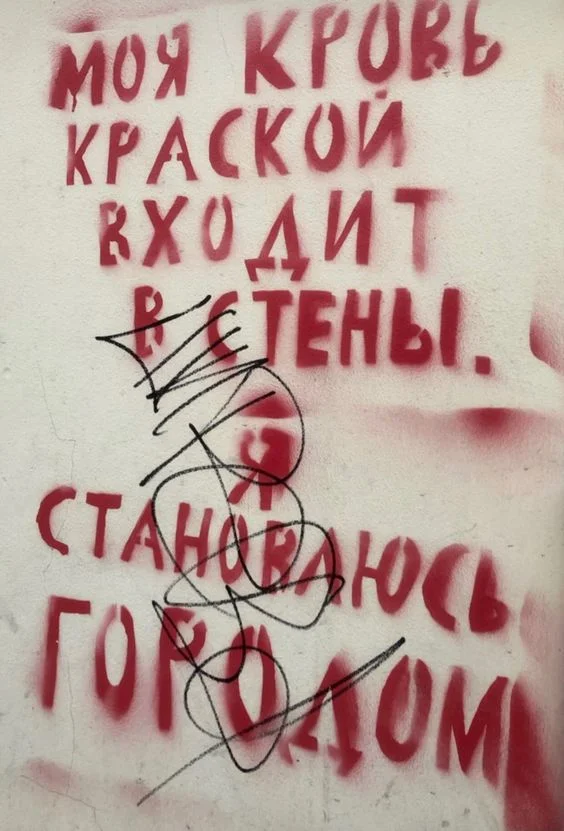 МОЯ КРОВЬ
КРАСКОЙ
ВХОДИТ
В СТЕНЫ.
Я
СТАНОВЛЮСЬ
ГОРОДОМ